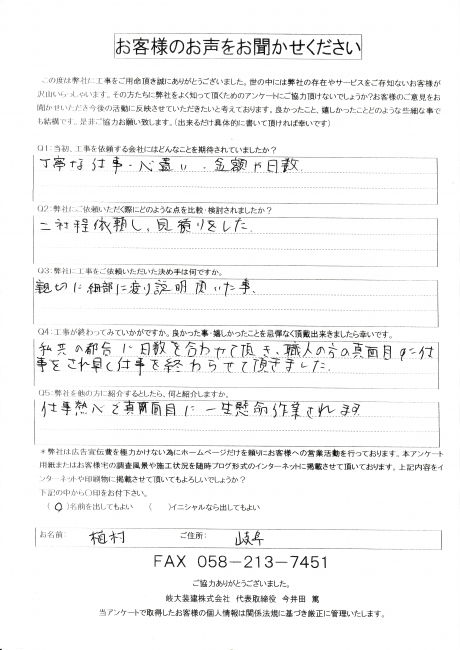 お客様のお声をお聞かせください
この度は弊社に工事をご用命頂き誠にありがとうございました。世の中には弊社の存在やサービスをご存知ないお客様が
沢山いらっしゃいます。その方たちに弊社をよく知って頂くためのアンケートにご協力頂けないでしょうか？お客様のご意見をお
聞かせいただき今後の活動に反映させていただきたいと考えております。良かったこと、嬉しかったことどのような些細な事で
も結構です。是非ご協力お願い致します。（出来るだけ具体的に書いて頂ければ幸いです）
Q1：当初、工事を依頼する会社にはどんなことを期待されていましたか？
丁寧な仕事・心遣い・金額や日数
Q2：弊社にご依頼いただく際にどのような点を比較・検討されましたか？
二社程依頼し、見積りをした.
Q3：弊社に工事をご依頼いただいた決め手は何ですか。
親切に細部に渡り説明頂いた事.
Q4：工事が終わってみていかがですか。良かった事・嬉しかったことを忌憚なく頂戴出来きましたら幸いです。
私共の都合に日数を合わせて頂き、職人の方の真面目に仕
事をされ早く仕事を終わらせて頂きました.
Q5：弊社を他の方に紹介するとしたら、何と紹介しますか。
仕事熱心で真面目に一生懸命作業されます
＊弊社は広告宣伝費を極力かけない為にホームページだけを頼りにお客様への営業活動を行っております。本アンケート
用紙またはお客様宅の調査風景や施工状況を随時ブログ形式のインターネットに掲載させて頂いております。上記内容をイ
ンターネットや印刷物に掲載させて頂いてもよろしいでしょうか？
下記の中から〇印をお付下さい。
（ 〇 ）名前を出してもよい （ ）イニシャルなら出してもよい
お名前： 植村 ご住所： 岐阜
FAX 058-213-7451
ご協力ありがとうございました。
岐大装建株式会社 代表取締役 今井田 篤
当アンケートで取得したお客様の個人情報は関係法規に基づき厳正に管理いたします。